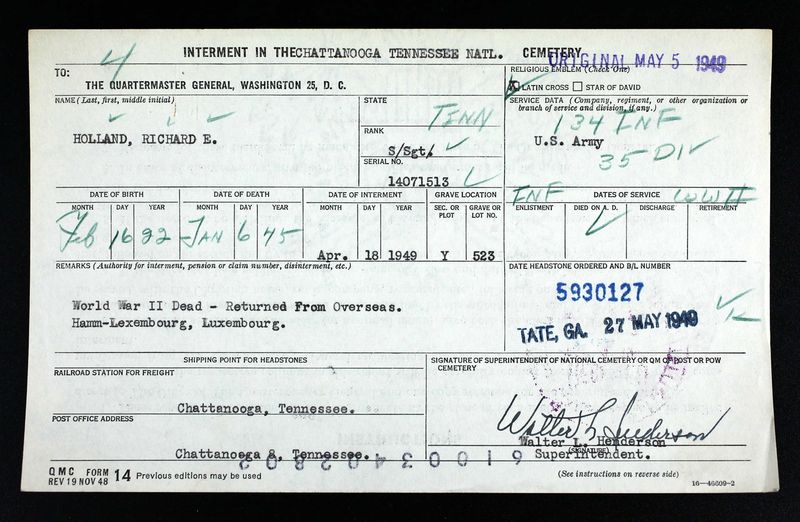 4
INTERMENT IN THE CHATTANOOGA TENNESSEE NATL. CEMETERY
ORIGINAL MAY 5 1949
TO:
THE QUARTERMASTER GENERAL, WASHINGTON 25, D. C.
RELIGIOUS EMBLEM (Check One)
X LATIN CROSS STAR OF DAVID
NAME (Last, first, middle initial)
HOLLAND, RICHARD E.
STATE
TENN
RANK
S/Sgt.
SERIAL NO.
14071513
SERVICE DATA (Company, regiment, or other organization or
branch of service and division, if any.)
134 INF
U.S. Army
35 DIV
DATE OF BIRTH DATE OF DEATH DATE OF INTERMENT GRAVE LOCATION
MONTH DAY YEAR MONTH DAY YEAR MONTH DAY YEAR SEC. OR PLOT GRAVE OR LOT NO.
Feb 16 22 JAN 6 45 Apr. 18 1949 Y 523
INF DATES OF SERVICE WW II
ENLISTMENT DIED ON A. D. DISCHARGE RETIREMENT
REMARKS (Authority for interment, pension or claim number, disinterment, etc.)
World War II Dead - Returned From Overseas.
Hamm-Lexembourg, Luxembourg.
DATE HEADSTONE ORDERED AND B/L NUMBER
5930127
TATE, GA. 27 MAY 1949
SHIPPING POINT FOR HEADSTONES
RAILROAD STATION FOR FREIGHT
Chattanooga, Tennessee.
POST OFFICE ADDRESS
Chattanooga 8, Tennessee.
SIGNATURE OF SUPERINTENDENT OF NATIONAL CEMETERY OR QM OF POST OR POW
CEMETERY
Walter L. Henderson
Walter L. Henderson
(SIGNATURE)
Superintendent.
QMC FORM 14 Previous editions may be used
REV 19 NOV 48
(See instructions on reverse side)
16—46609-2